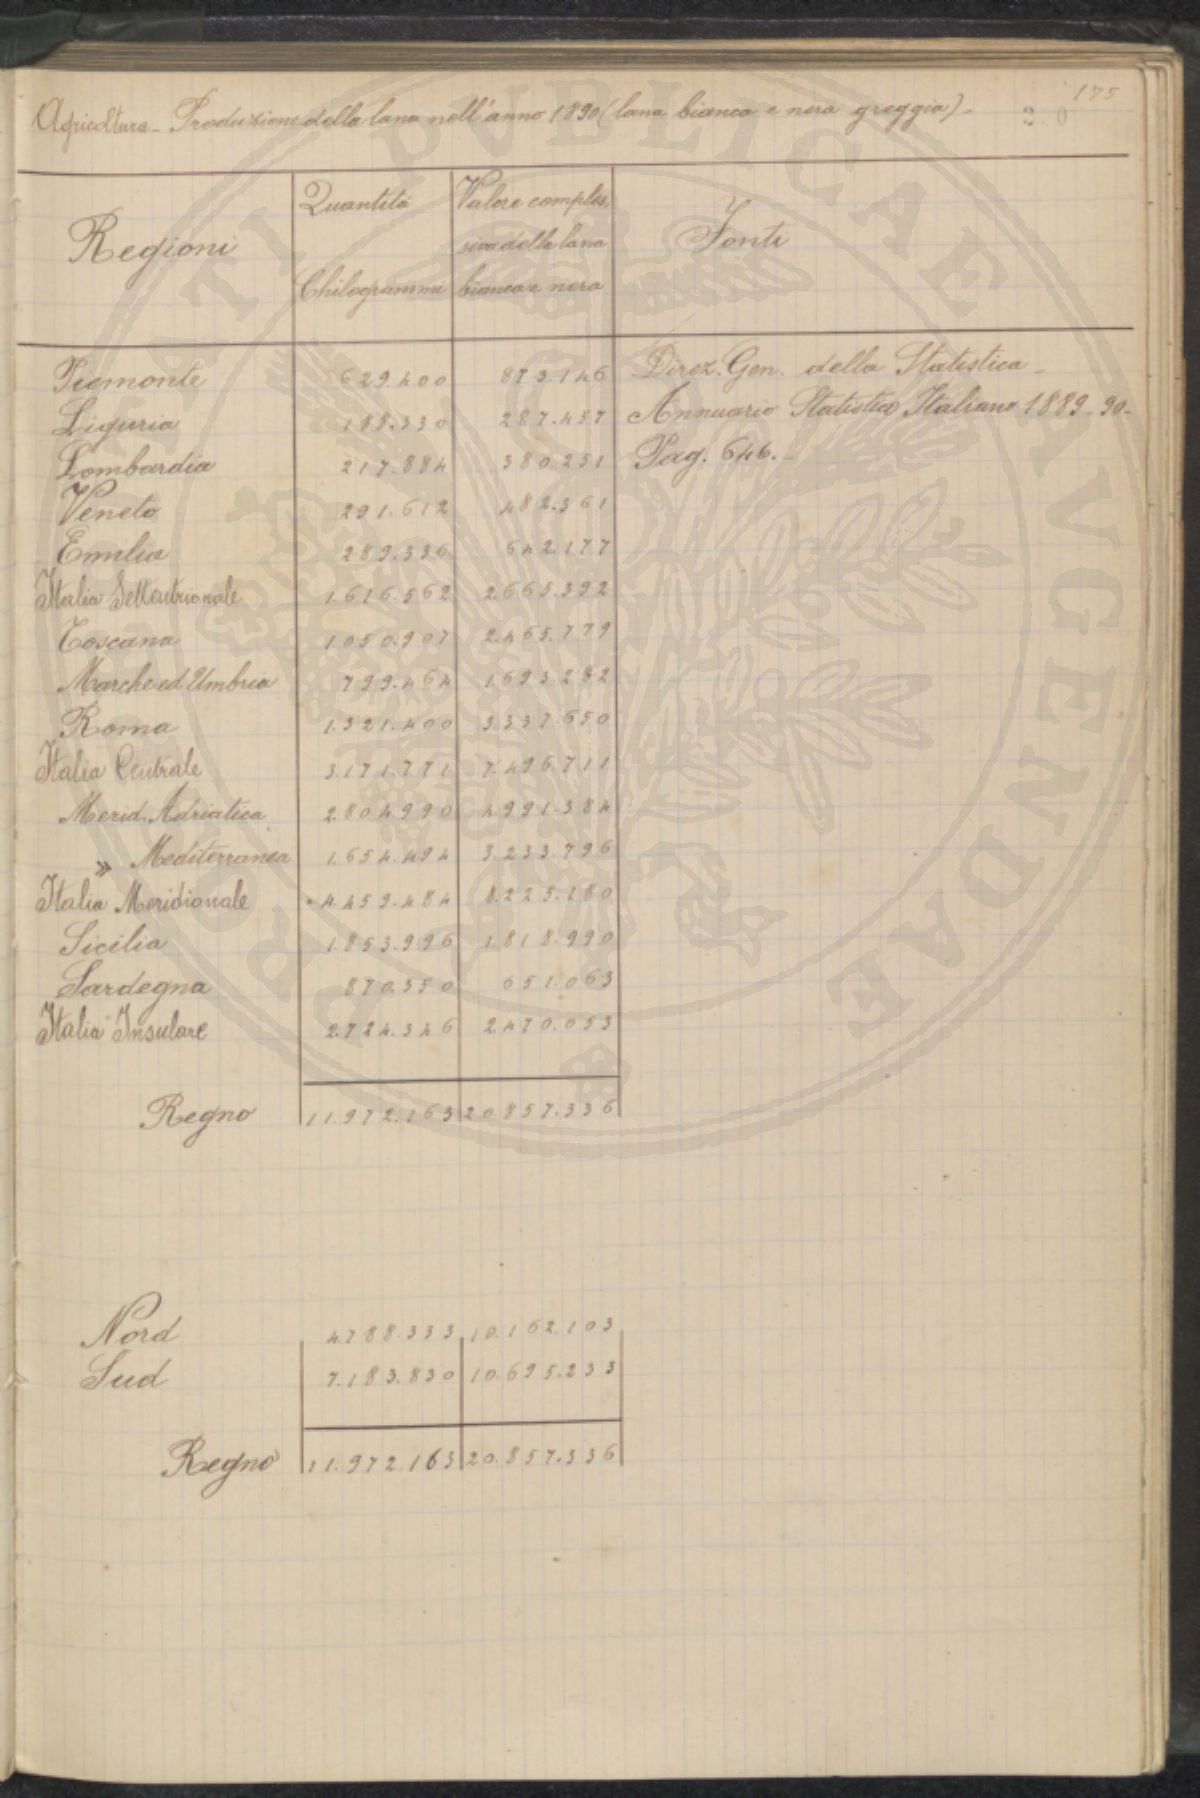 175
20
Agricoltura - Produzione della lana nell'anno 1890 (lana bianca e nera greggia) -
Regioni | Quantità Chilogrammi | Valore comples sivo della lana bianca e nera | Fonti
Piemonte 629.400 873.146 Direz. Gen. della Statistica -
Liguria 188.330 287.457 Annuario Statistico Italiano 1889-90-
Lombardia 217.884 380.251 Pag. 646. -
Veneto 291.612 482.361
Emilia 289.336 642.177
Italia Settentrionale 1.616.562 2.665.392
Toscana 1.050.907 2.465.779
Marche ed Umbria 799.464 1.693.282
Roma 1.321.400 3.337.650
Italia Centrale 3.171.771 7.496.711
Merid. Adriatica 2.804.990 4.991.384
» Mediterranea 1.654.494 3.233.796
Italia Meridionale 4.459.484 8.225.180
Sicilia 1.853.996 1.818.990
Sardegna 870.350 651.063
Italia Insulare 2.724.346 2.470.053
Regno 11.972.163 20.857.336
Nord 4.788.333 10.162.103
Sud 7.183.830 10.695.233
Regno 11.972.163 20.857.336